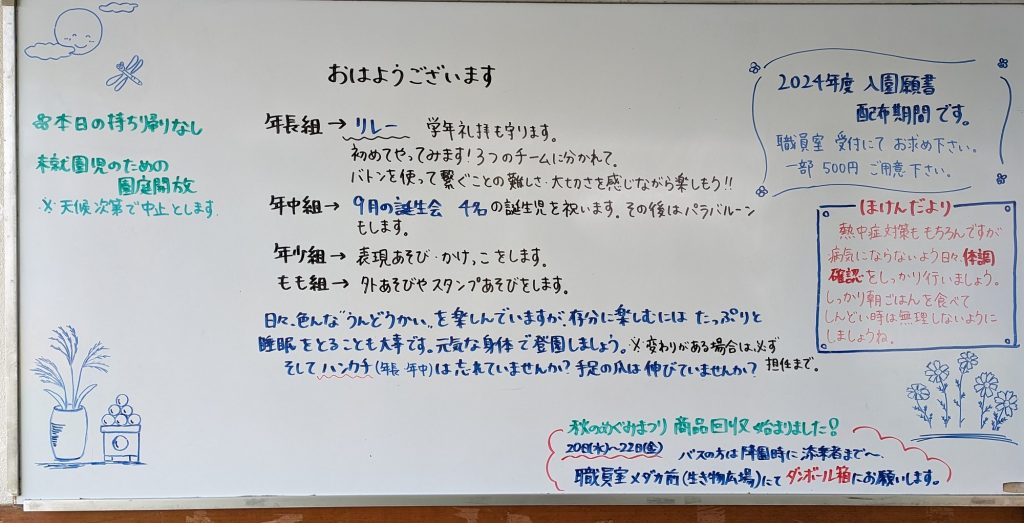 おはようございます
❀本日の持ち帰りなし
未就園児のための
園庭開放
※天候次第で中止とします
年長組→リレー 学年礼拝も守ります。
初めてやってみます！3つのチームに分かれて。
バトンを使って繋ぐことの難しさ・大切さを感じながら楽しもう!!
年中組→9月の誕生会 4名の誕生児を祝います。その後はパラバルーン
もします。
年少組→表現あそび・かけっこをします。
もも組→外あそびやスタンプあそびをします。
日々、色んな"うんどうかい"を楽しんでいますが、存分に楽しむには たっぷりと
睡眠をとることも大事です。元気な身体で登園しましょう。※変わりがある場合は、必ず
担任まで。
そして ハンカチ(年長・年中)は忘れていませんか？手足の爪は伸びていませんか？
2024年度 入園願書
配布期間です。
職員室 受付にて お求め下さい。
一部 500円 ご用意下さい。
ほけんだより
熱中症対策も もちろんですが
病気にならないよう日々、体調
確認をしっかり行いましょう。
しっかり朝ごはんを食べて
しんどい時は無理しないように
しましょうね。
秋のめぐみまつり 商品回収 始まりました!
20日(水)～22日(金) バスの方は降園時に添乗者まで～
職員室メダカ前(生き物広場)にて ダンボール箱にお願いします。